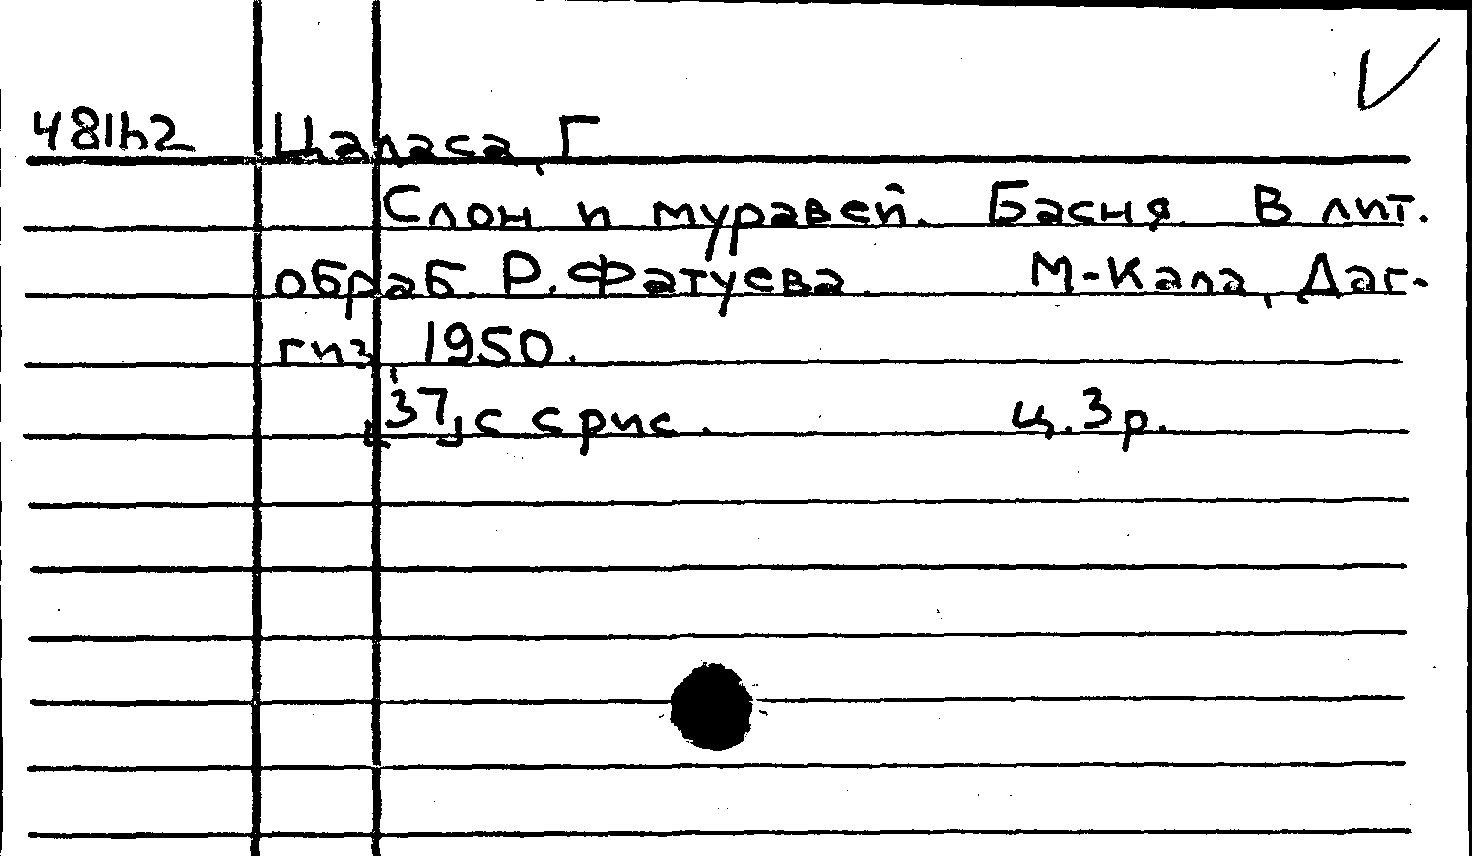 481h2 Цаласа, Г
Слон и муравей. Басня В лит.
обраб. Р. Фатуева М-Кала, Даг-
гиз, 1950.
[37] с с рис. ц. 3 р.